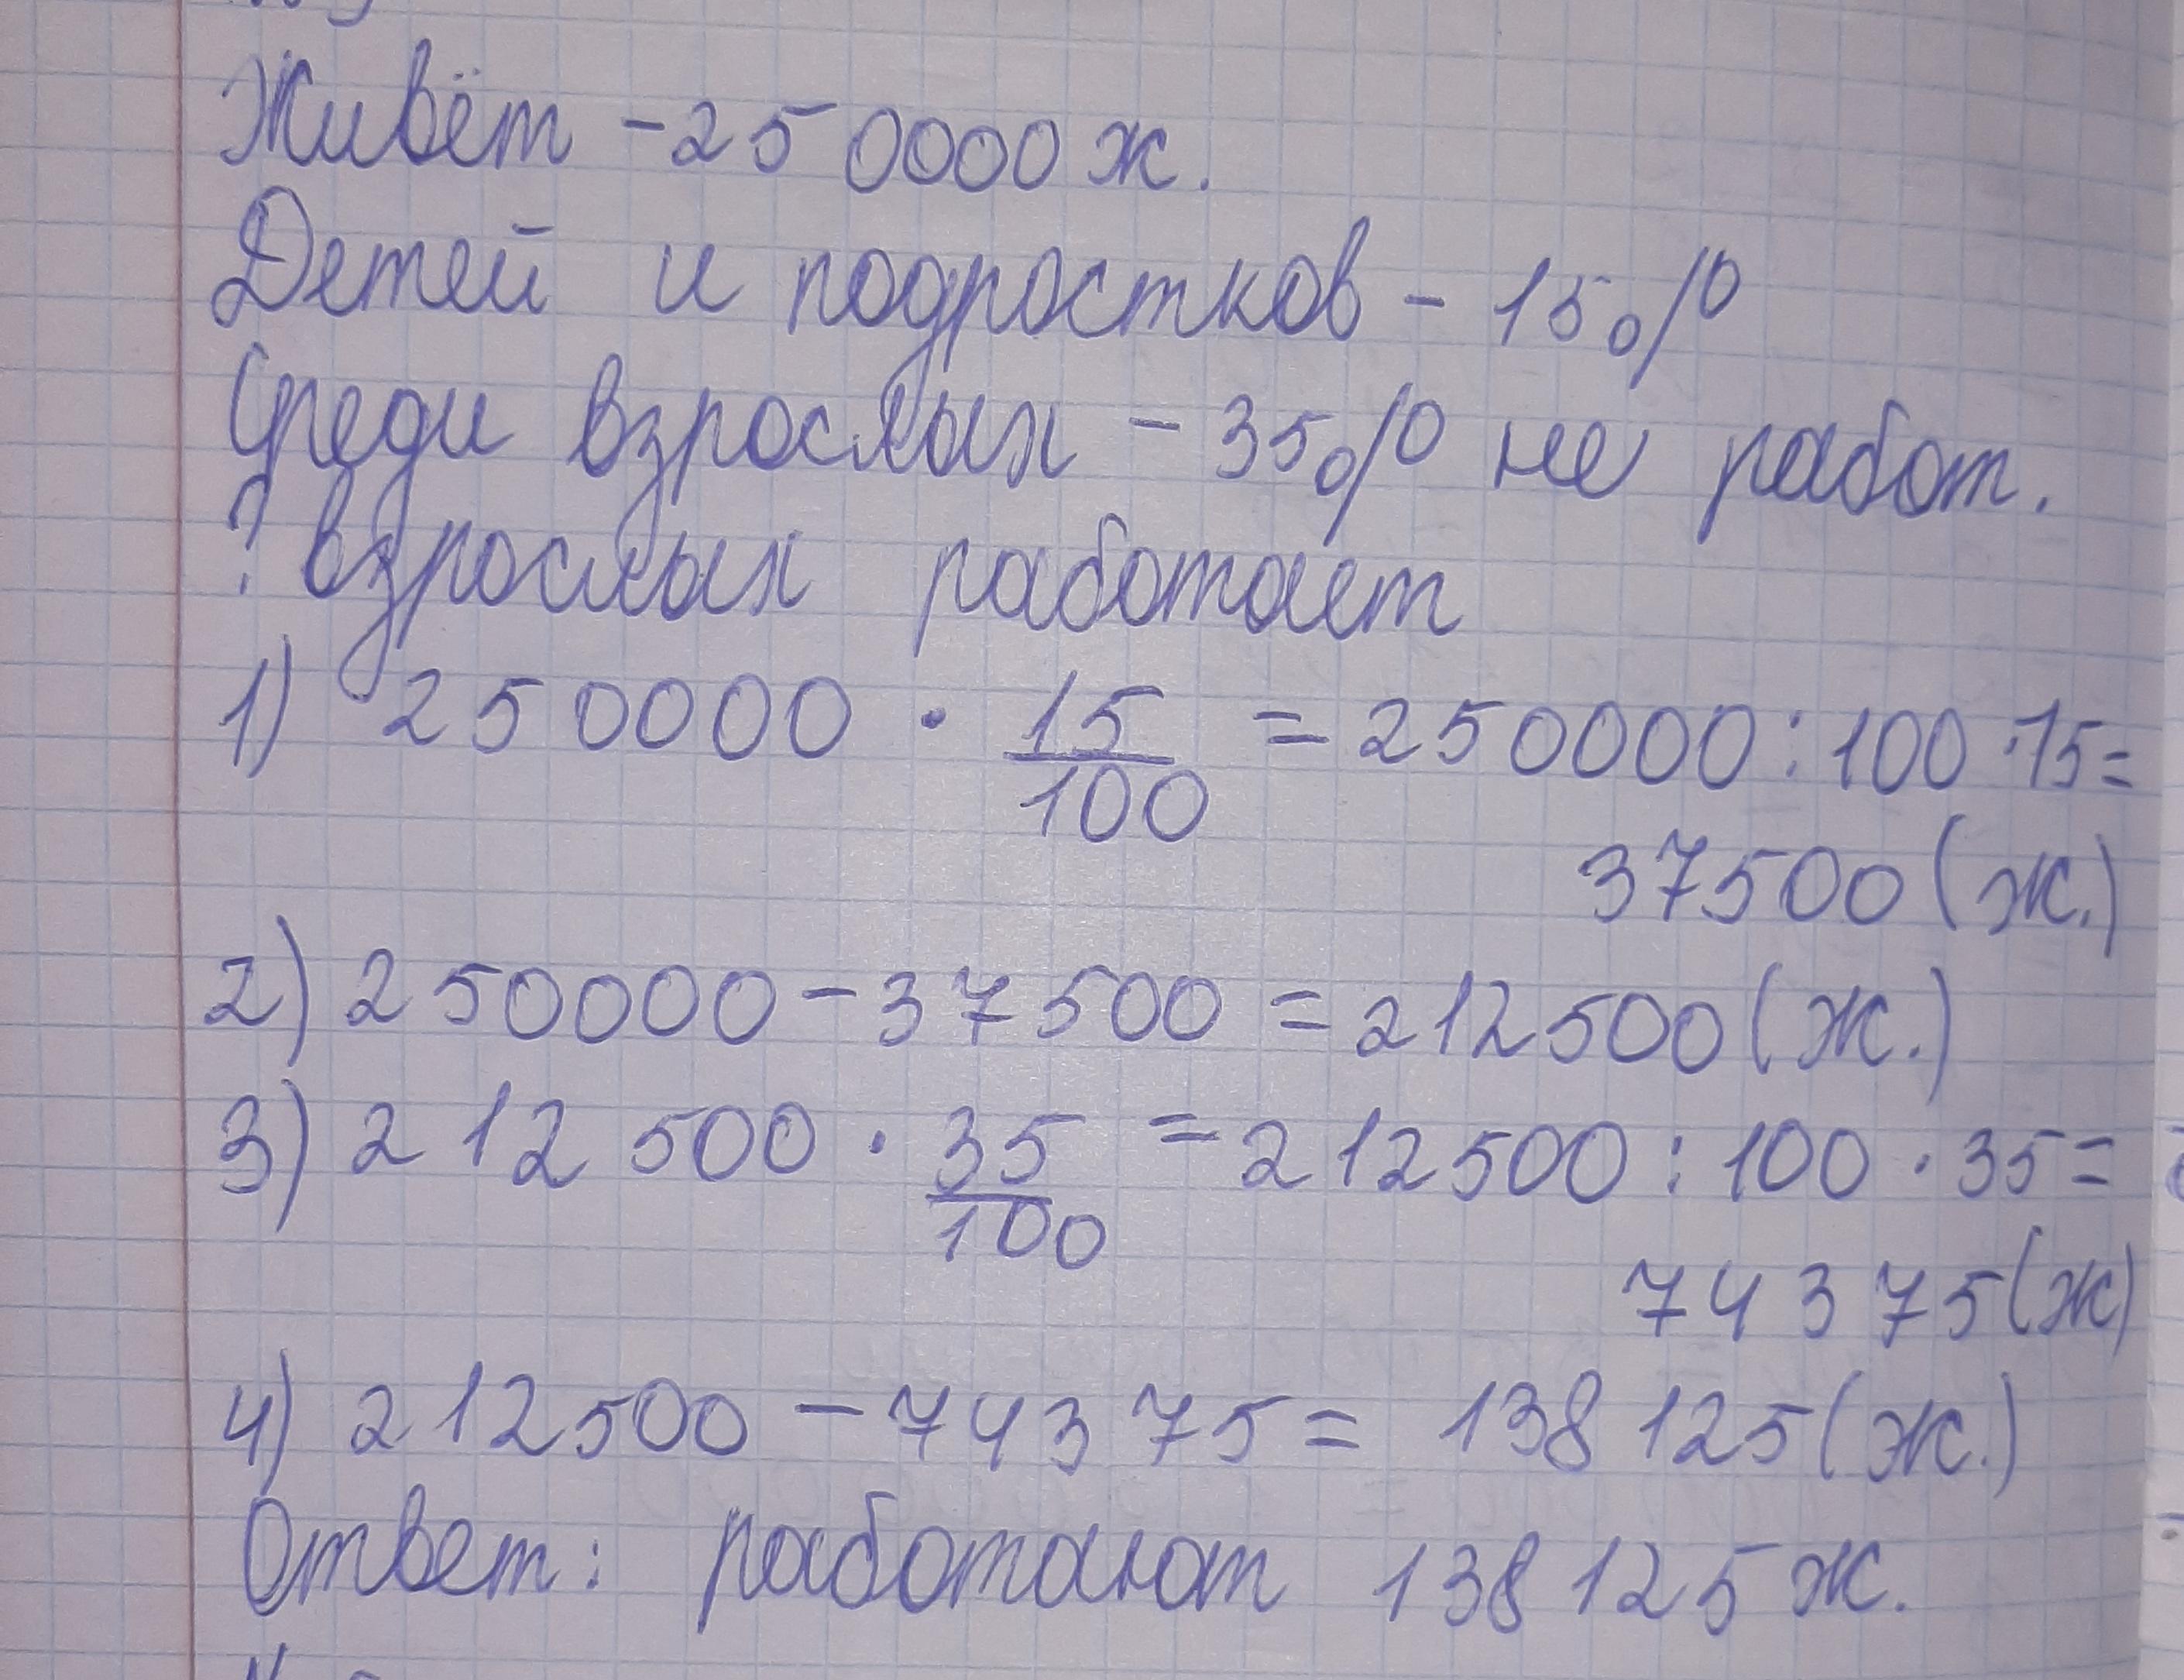 Живёт - 250000 ж.
Детей и подростков - 15%
Среди взрослых - 35% не работ.
? взрослых работает
1) 250000 · 15/100 = 250000 : 100 · 15 =
37500 (ж.)
2) 250000 - 37500 = 212500 (ж.)
3) 212500 · 35/100 = 212500 : 100 · 35 =
74375 (ж)
4) 212500 - 74375 = 138125 (ж.)
Ответ: работают 138125 ж.